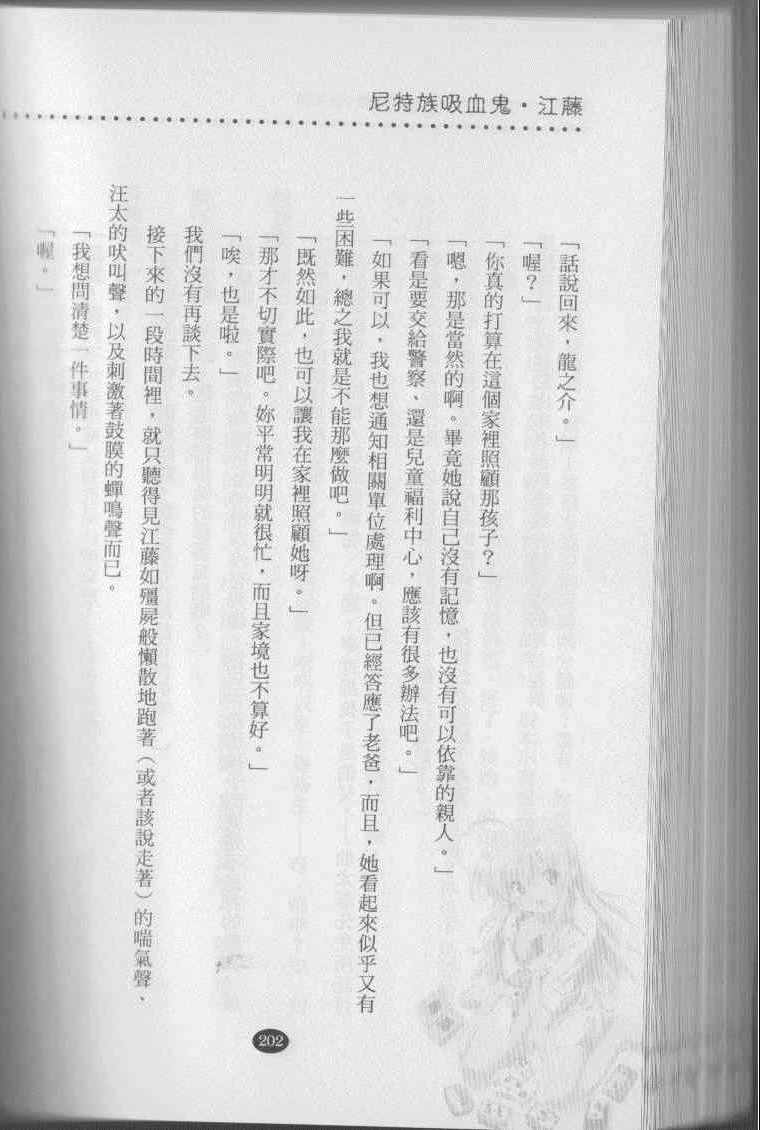 尼特族吸血鬼・江藤
「話說回來，龍之介。」
「喔？」
「你真的打算在這個家裡照顧那孩子？」
「嗯，那是當然的啊。畢竟她說自己沒有記憶，也沒有可以依靠的親人。」
「看是要交給警察、還是兒童福利中心，應該有很多辦法吧。」
「如果可以，我也想通知相關單位處理啊。但已經答應了老爸，而且，她看起來似乎又有
一些困難，總之我就是不能那麼做吧。」
「既然如此，也可以讓我在家裡照顧她呀。」
「那才不切實際吧。妳平常明明就很忙，而且家境也不算好。」
「唉，也是啦。」
我們沒有再談下去。
接下來的一段時間裡，就只聽得見江藤如殭屍般懶散地跑著（或者該說走著）的喘氣聲、
汪太的吠叫聲，以及刺激著鼓膜的蟬鳴聲而已。
「我想問清楚一件事情。」
「喔。」
202